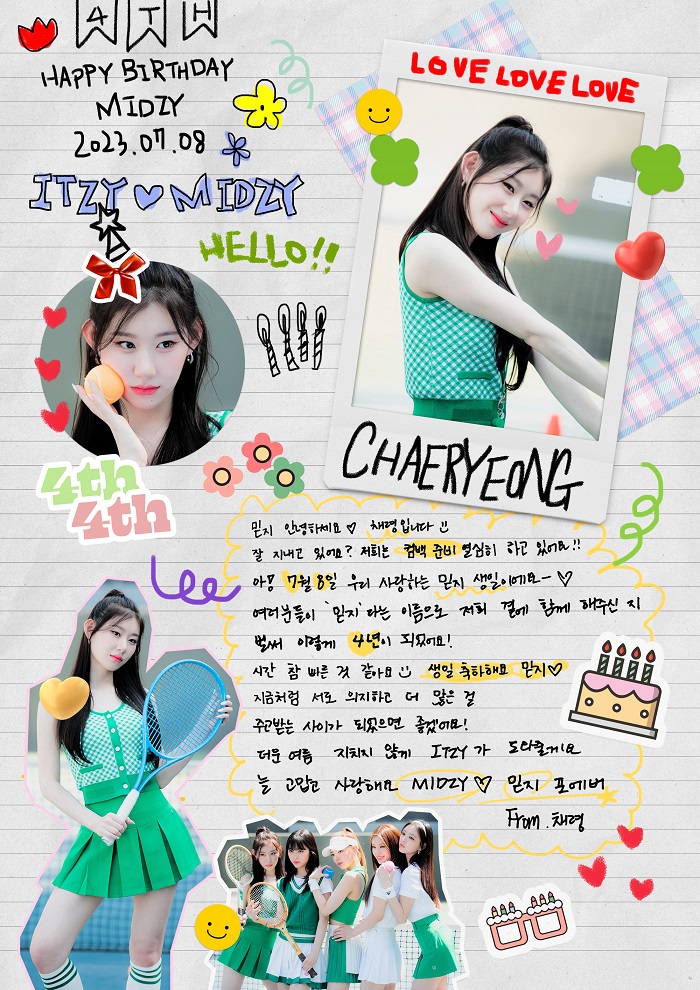 4TH
HAPPY BIRTHDAY
MIDZY
2023.07.08
ITZY ♡ MIDZY
HELLO!!
LOVE LOVE LOVE
CHAERYEONG
4th
4th
믿지 안녕하세요 ♡ 채령입니다
잘 지내고 있어요? 저희는 컴백 준비 열심히 하고 있어요!!
아암 7월 8일 우리 사랑하는 믿지 생일이에요- ♡
여러분들이 '믿지'라는 이름으로 저희 곁에 함께 해주신 지
벌써 이렇게 4년이 되었어요!
시간 참 빠른 것 같아요 생일 축하해요 믿지♡
지금처럼 서로 의지하고 더 많은 걸
주고받는 사이가 되었으면 좋겠어요!
더운 여름 지치지 않게 ITZY가 도와줄게요
늘 고맙고 사랑해요 MIDZY ♡ 믿지 포에버
From. 채령